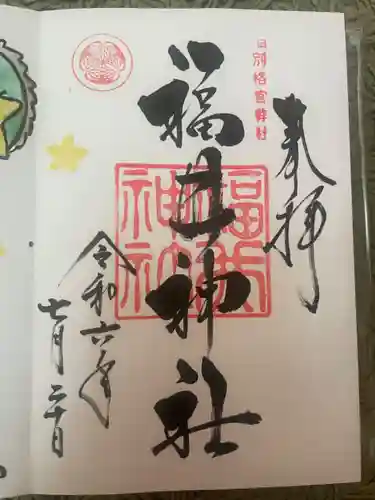 奉拝
旧別格官幣社
福井神社
福井神社
令和六年
七月二十日